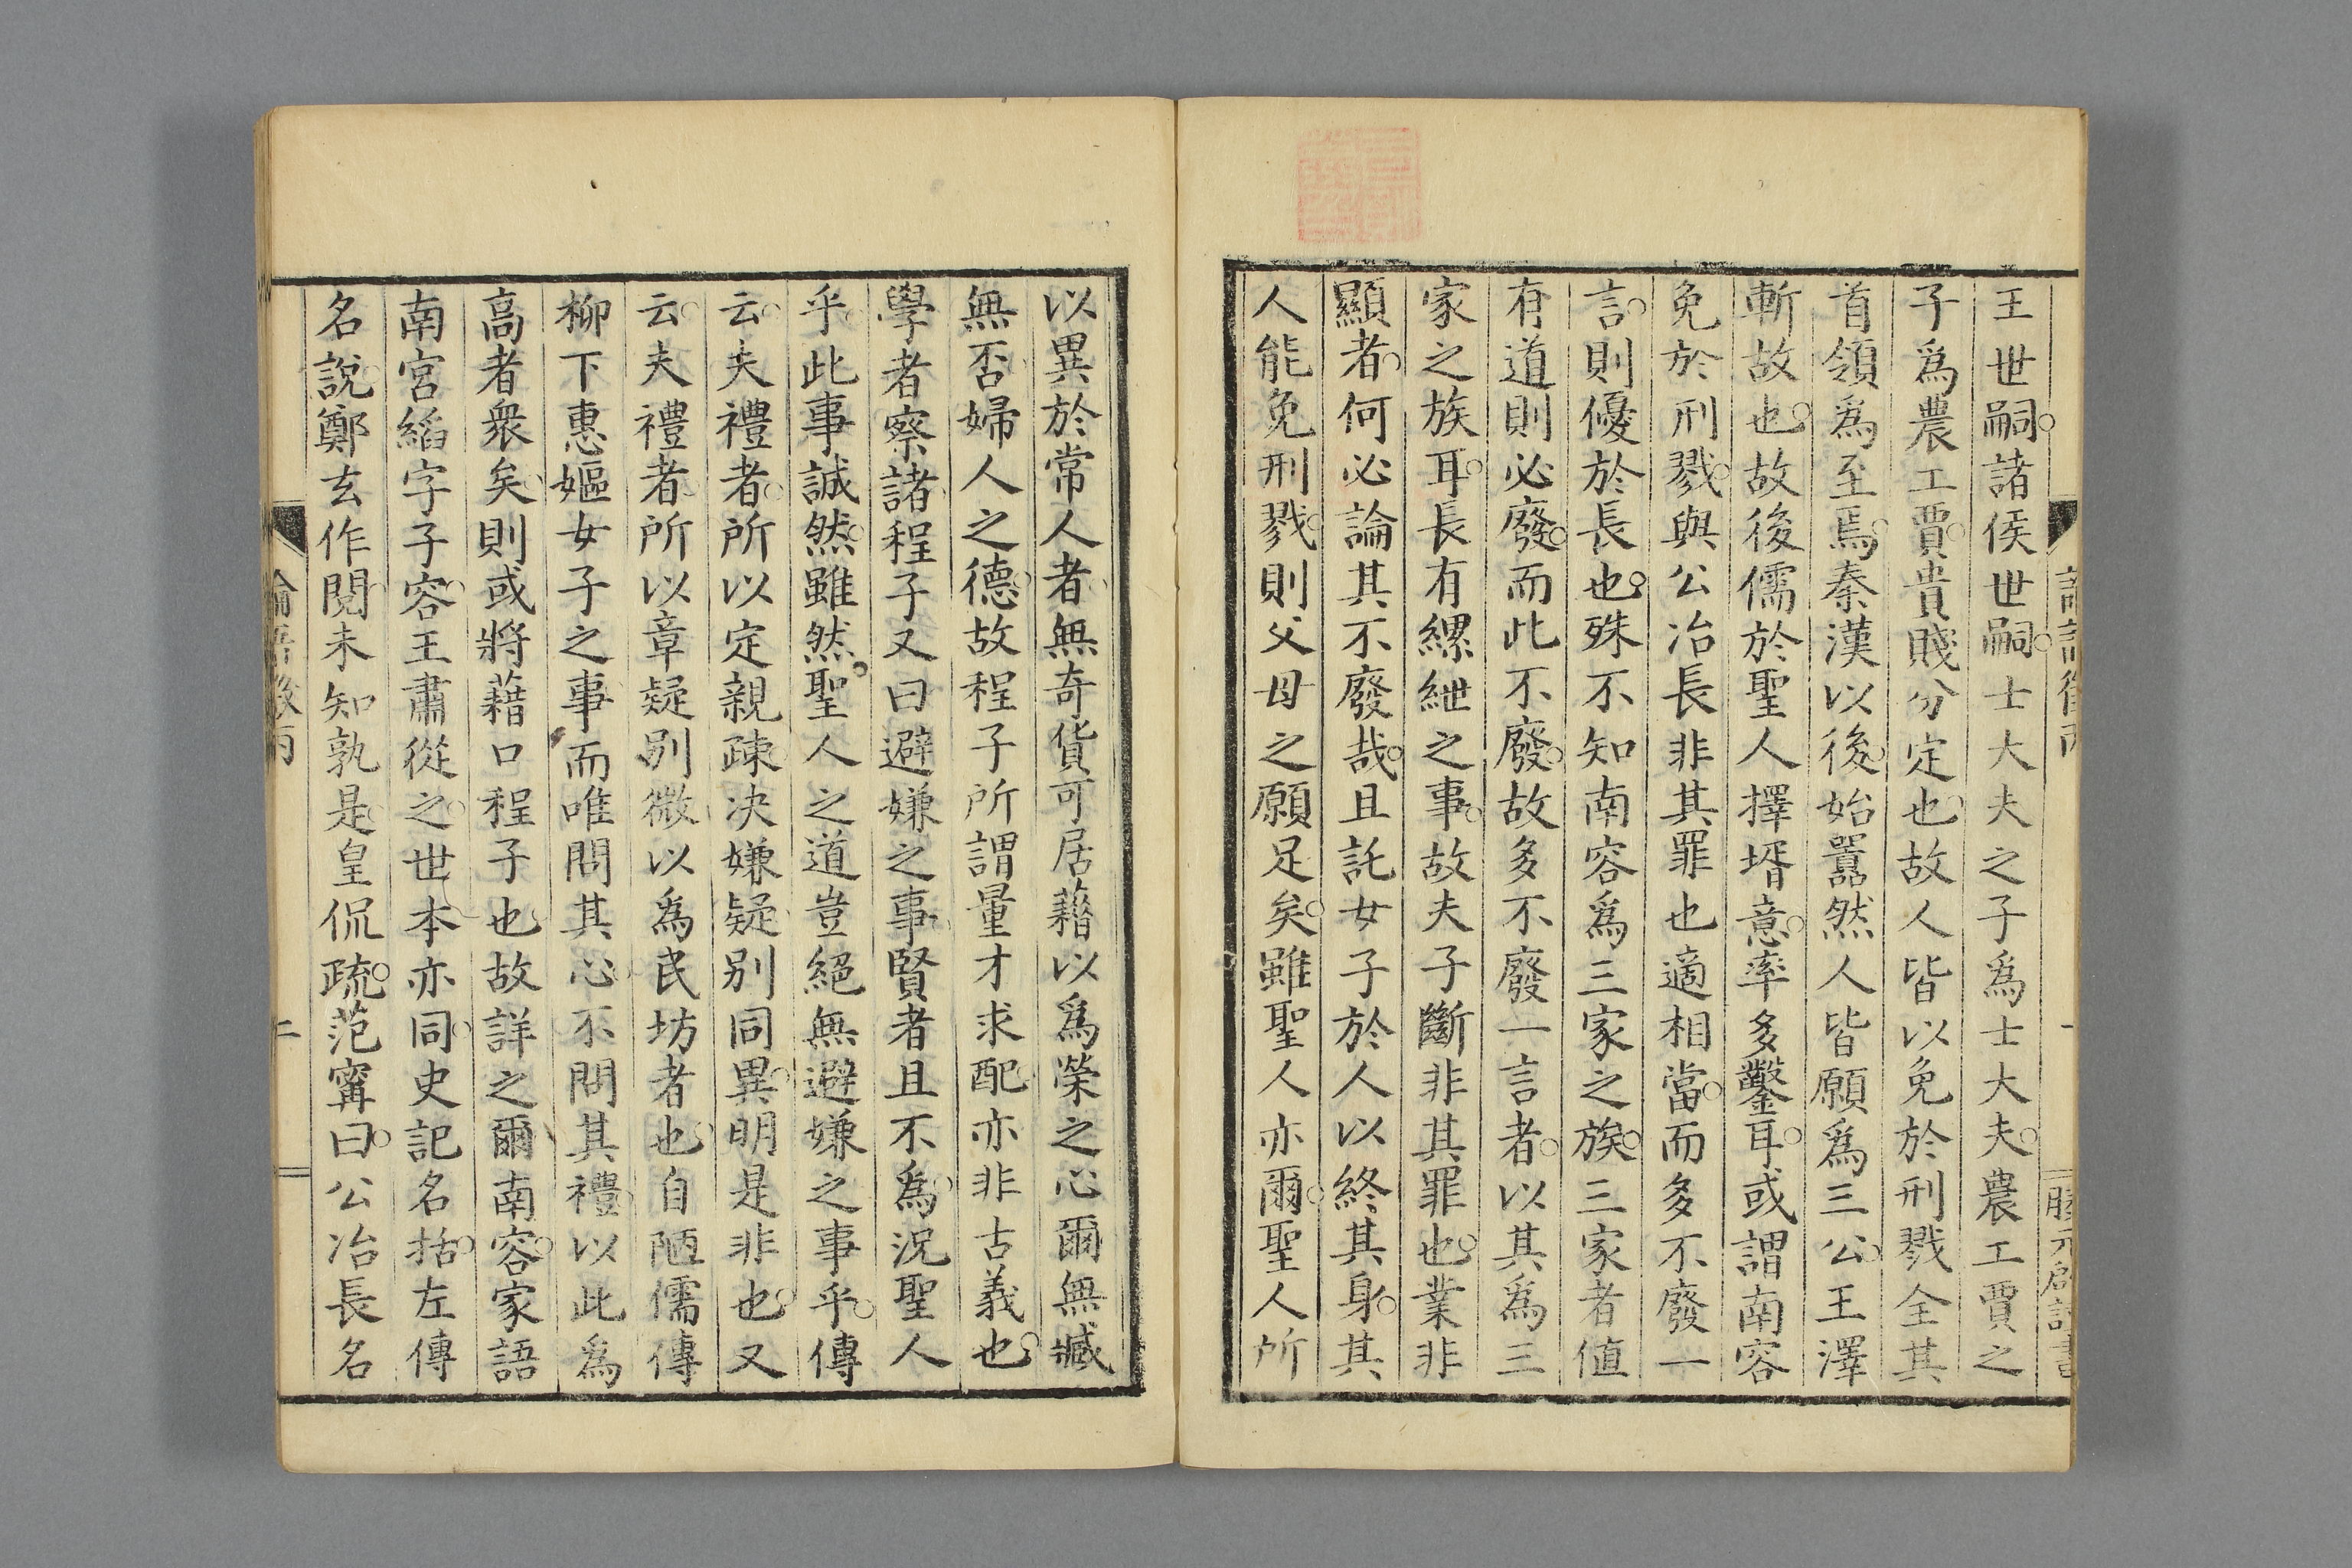 王世嗣諸侯世嗣士大夫之子爲士大夫農工賈之
子爲農工賈貴賤分定也故人皆以免於刑戮全其
首領爲至焉秦漢以後始囂然人皆願爲三公王澤
斬故也故後儒於聖人擇壻意率多鑿耳或謂南容
免於刑戮與公冶長非其罪也適相當而多不廢一
言則優於長也殊不知南容爲三家之族三家者値
有道則必廢而此不廢故多不廢一言者以其爲三
家之族耳長有縲紲之事故夫子斷非其罪也業非
顯者何必論其不廢哉且託女子於人以終其身其
人能免刑戮則父母之願足矣雖聖人亦爾聖人所
以異於常人者無奇貨可居藉以爲榮之心爾無臧
無否婦人之德故程子所謂量才求配亦非古義也
學者察諸程子又曰避嫌之事賢者且不爲況聖人
乎此事誠然雖然聖人之道豈絕無避嫌之事乎傳
云夫禮者所以定親疎决嫌疑别同異明是非也又
云夫禮者所以章疑别微以爲民坊者也自陋儒傳
柳下惠嫗女子之事而唯問其心不問其禮以此爲
高者衆矣則或將藉口程子也故詳之爾南容家語
南宮縚字子容王肅從之世本亦同史記名括左傳
名說鄭玄作閱未知孰是皇侃疏范甯曰公冶長名